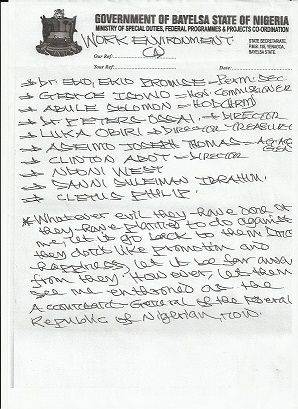 GOVERNMENT OF BAYELSA STATE OF NIGERIA
MINISTRY OF SPECIAL DUTIES, FEDERAL PROGRAMMES & PROJECTS CO-ORDINATION
STATE SECRETARIAT,
P.M.B. 158, YENAGOA,
BAYELSA STATE.
WORK ENVIRONMENT
Our Ref:
Your Ref: Date
→ Dr. EBO, EKIO PROMISE - Perm. Sec.
→ GEORGE - Hon. Commissioner
→ ABULE SOLOMON - HOD (HRM)
→ Dr. PETERS OSSAI - DIRECTOR
→ LUKA OBIRI → Director - Treasury
→ ASEIMO JOSEPH THOMAS - AG. AG
GEN
→ CLINTON ABOT - Director
→ NDONI WEST
→ SANNI SULEIMAN IBRAHIM
→ CLETUS PHILIP.
* Whatever evil they have done or
they have planned to do against
me, let it go back to them.
they don't like promotion and
happiness, let it be far away
from they. However, let them
see me enthroned as the
Accountant-General of the Federal
Republic of Nigerian, now.